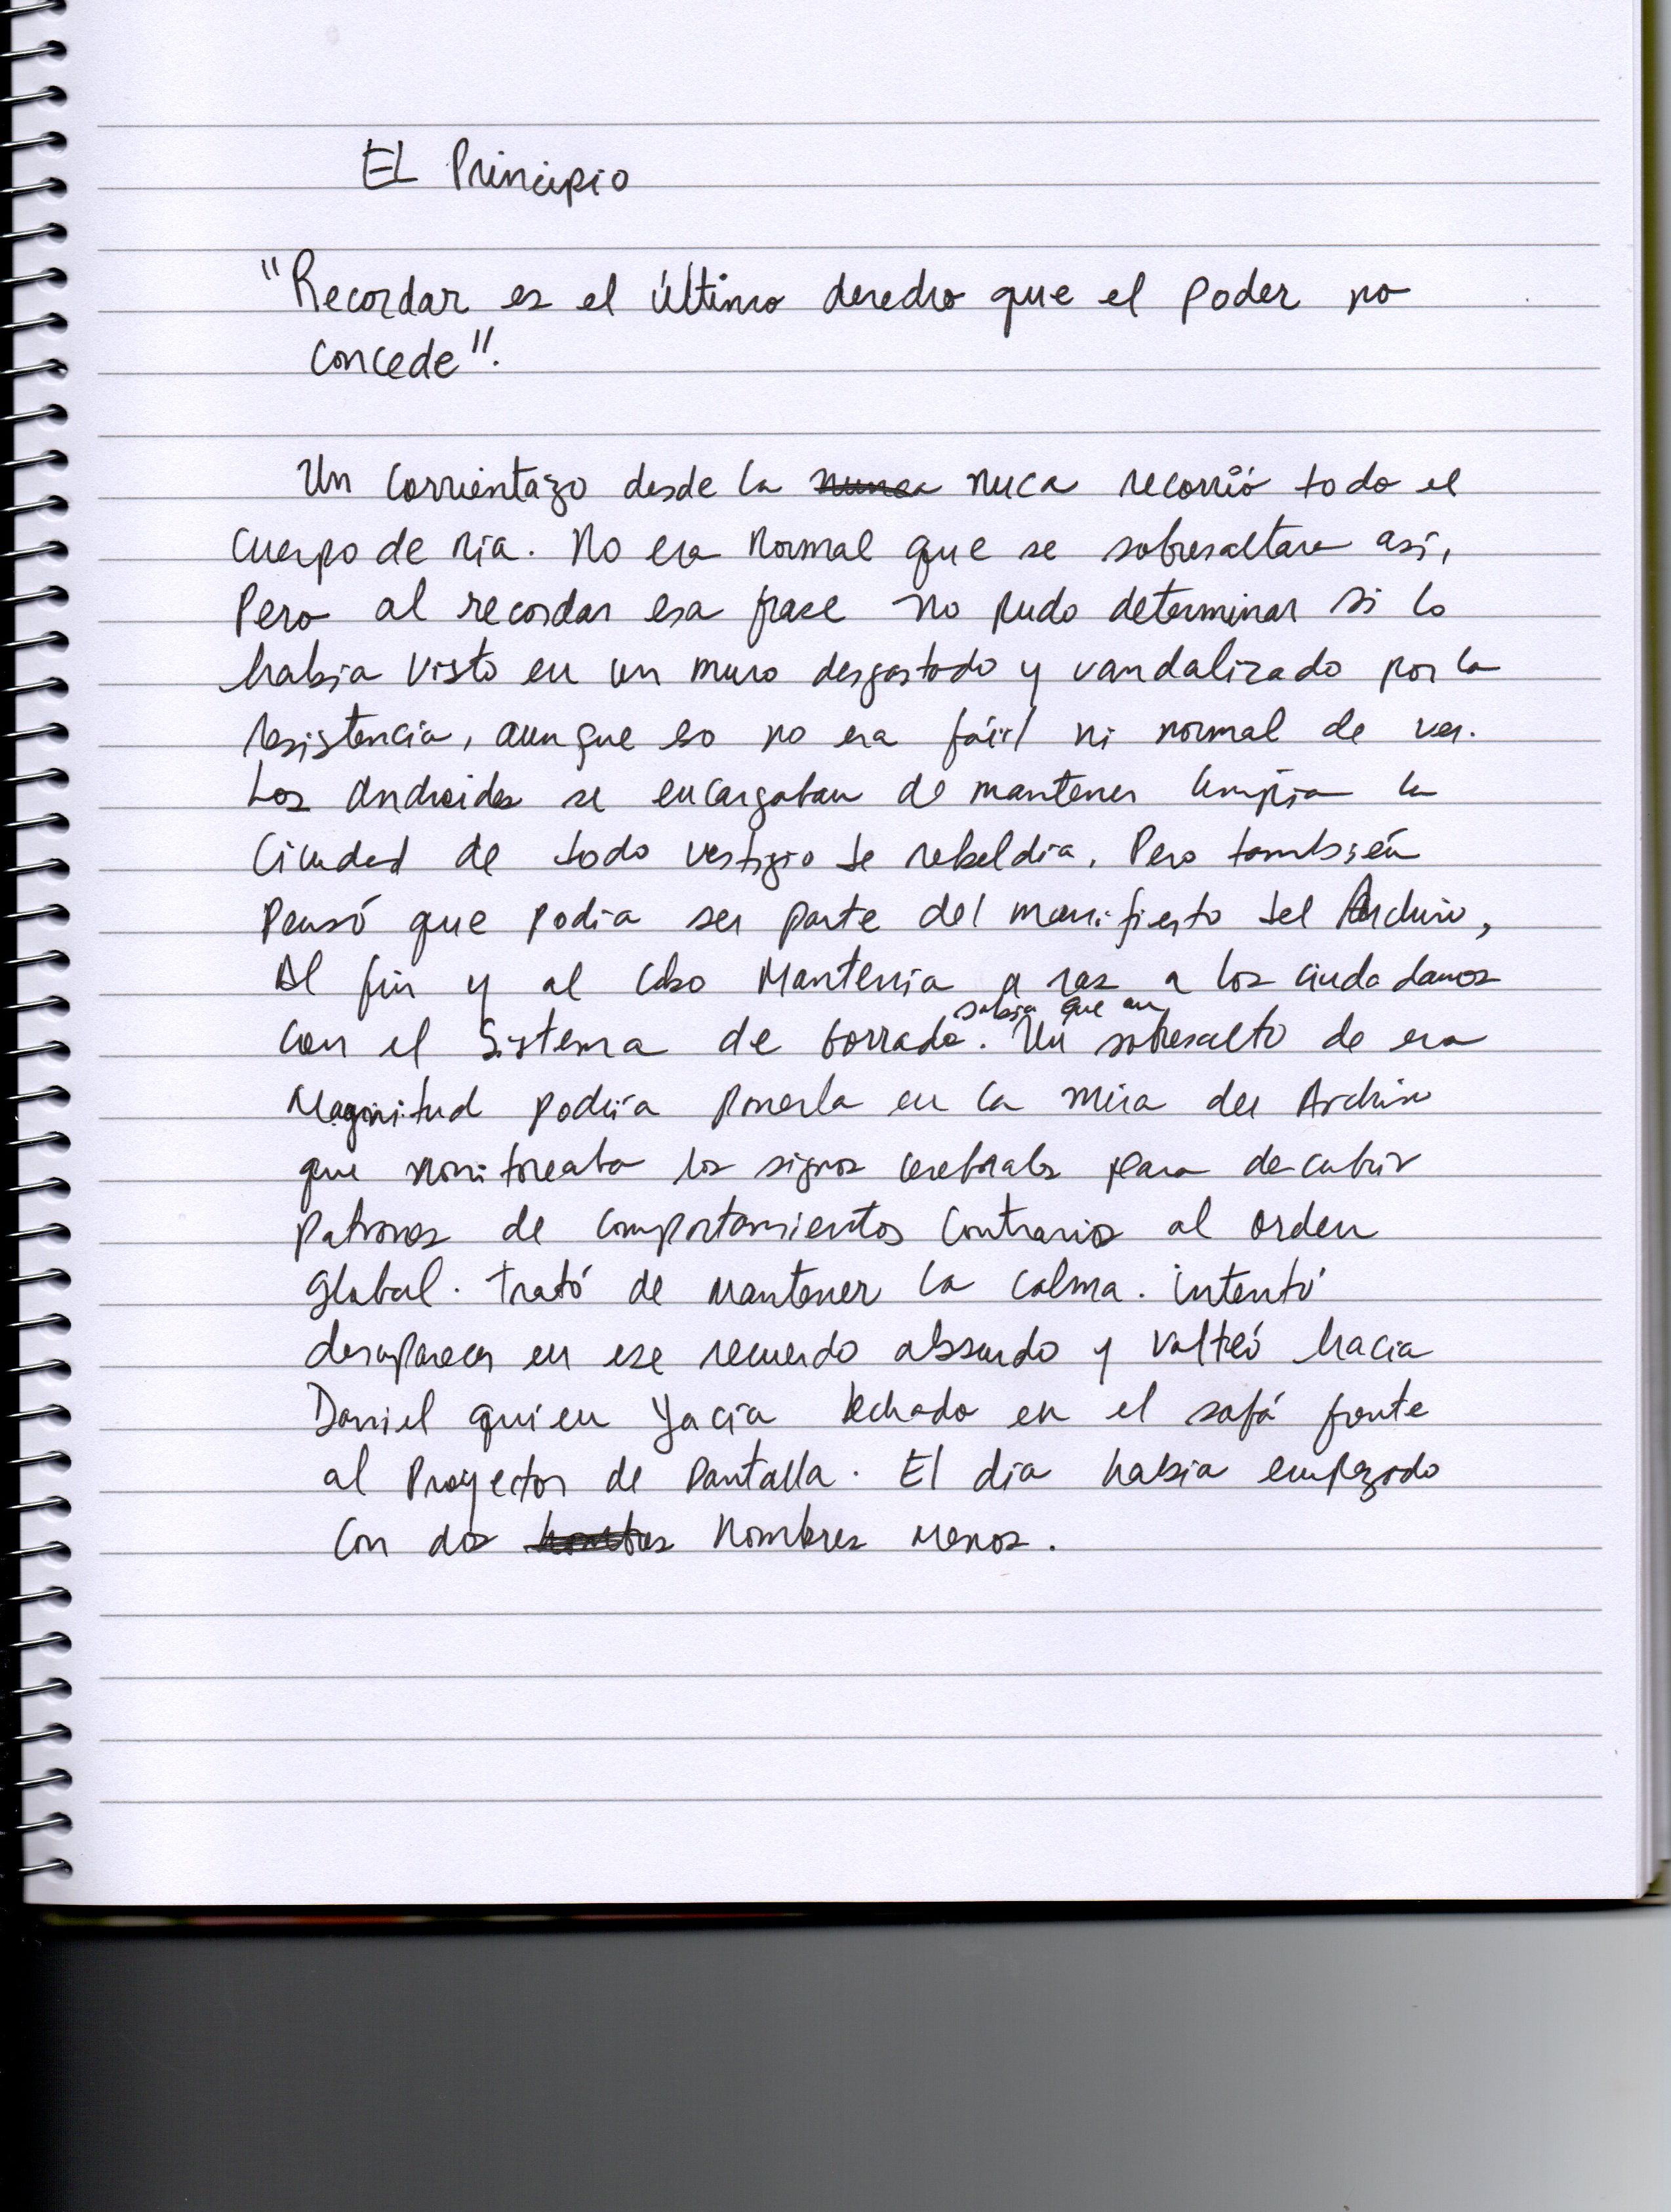 El Principio
"Recordar es el último derecho que el poder no
concede".
Un corrientazo desde la nuca recorrió todo el
cuerpo de nia. No era normal que se sobresaltara asi,
Pero al recordar esa frase no pudo determinar si lo
habia visto en un muro desgastado y vandalizado por la
resistencia, aunque eso no era fácil ni normal de ver.
Los androides se encargaban de mantener limpia la
Ciudad de todo vestigio de rebeldia. Pero también
Pensó que podia ser parte del manifiesto del Archivo,
Al fin y al cabo Mantenia a raz a los ciudadanos
sabia que un
con el Sistema de borrado. Un sobresalto de esa
Magnitud podria ponerla en la mira del Archivo
que monitoreaba los signos cerebrales para descubrir
patrones de comportamientos contrarios al orden
global. trató de mantener la calma. intentó
desaparecer en ese recuerdo absurdo y volteó hacia
Daniel quien Yacia echado en el sofá frente
al Proyector de Pantalla. El dia habia empezado
con dos nombres menos.